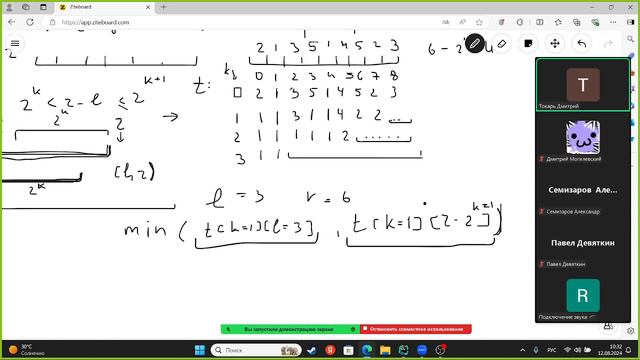 Ziteboard
https://app.ziteboard.com
2 1 3 5 1 4 5 2 3
k
0 1 2 3 4 5 6 7 8
t:
0 2 1 3 5 1 4 5 2 3
2^k ≤ r - l ≤ 2^{k+1}
1 1 1 3 1 1 4 2 2 ...
2^k
2 1 1 1 1 2 ......
3 1 1
2^k
l = 3 r = 6
min ( t[k=1][l=3] , t[k=1][r-2^{k=1}] )
T
Токарь Дмитрий
Дмитрий Могилевский
Семизаров Але...
Семизаров Александр
Павел Девяткин
Павел Девяткин
R
Подключение звука
Вы запустили демонстрацию экрана
Остановить совместное использование
30°C
Солнечно
Поиск
РУС
10:32
12.08.2024